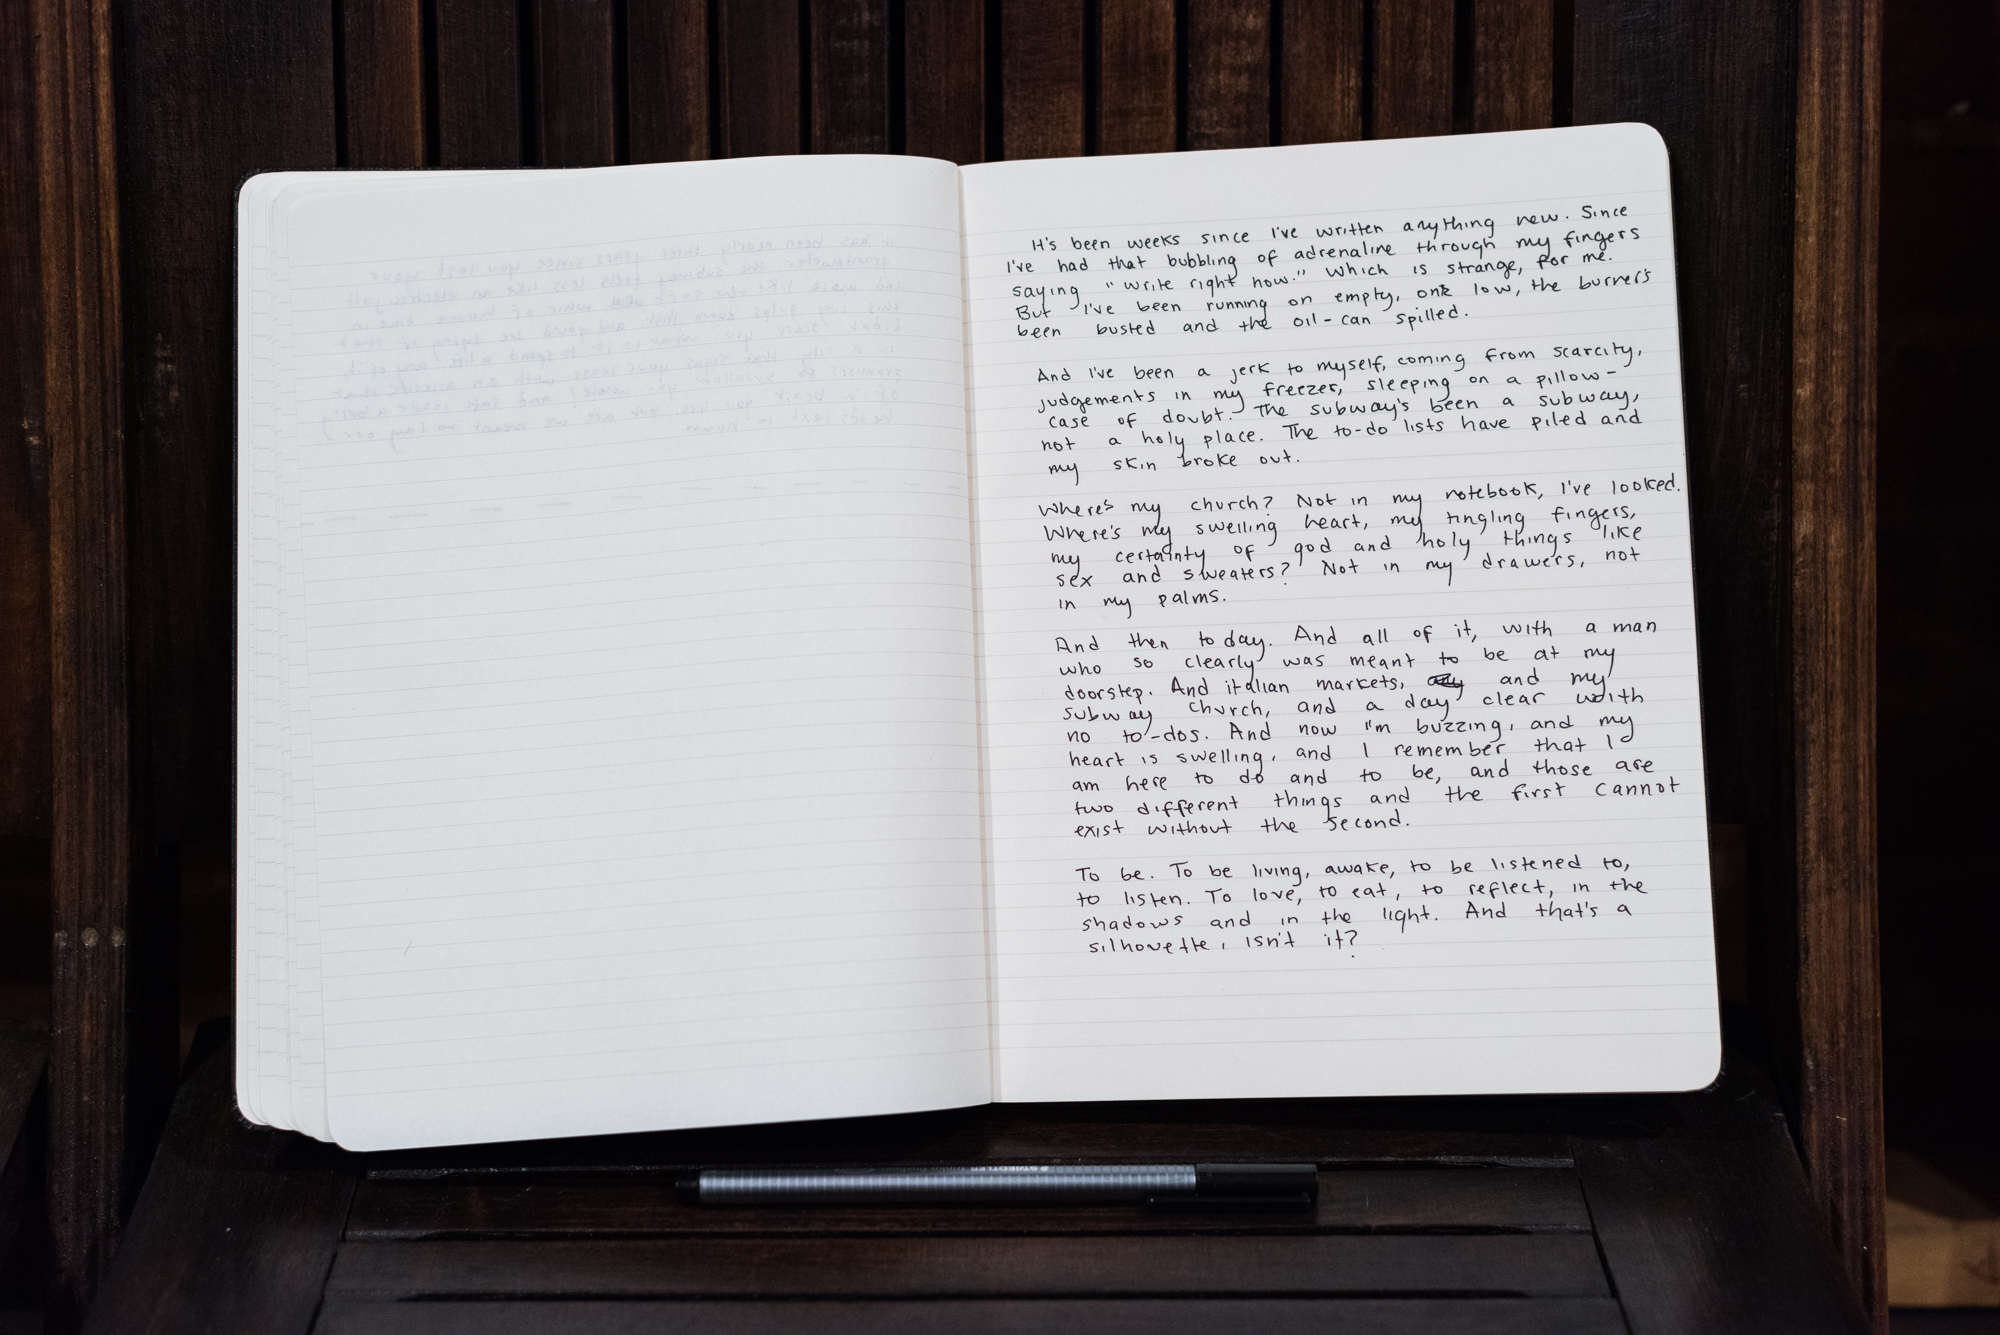 It's been weeks since I've written anything new. Since
I've had that bubbling of adrenaline through my fingers
saying "write right now." Which is strange, for me.
But I've been running on empty, on low, the burner's
been busted and the oil-can spilled.
And I've been a jerk to myself, coming from scarcity,
judgements in my freezer, sleeping on a pillow-
case of doubt. The subway's been a subway,
not a holy place. The to-do lists have piled and
my skin broke out.
Where's my church? Not in my notebook, I've looked.
Where's my swelling heart, my tingling fingers,
my certainty of god and holy things like
sex and sweaters? Not in my drawers, not
in my palms.
And then today. And all of it, with a man
who so clearly was meant to be at my
doorstep. And italian markets, and my
subway church, and a day clear with
no to-dos. And now I'm buzzing, and my
heart is swelling, and I remember that I
am here to do and to be, and those are
two different things and the first cannot
exist without the second.
To be. To be living, awake, to be listened to,
to listen. To love, to eat, to reflect, in the
shadows and in the light. And that's a
silhouette, isn't it?
STAEDTLER